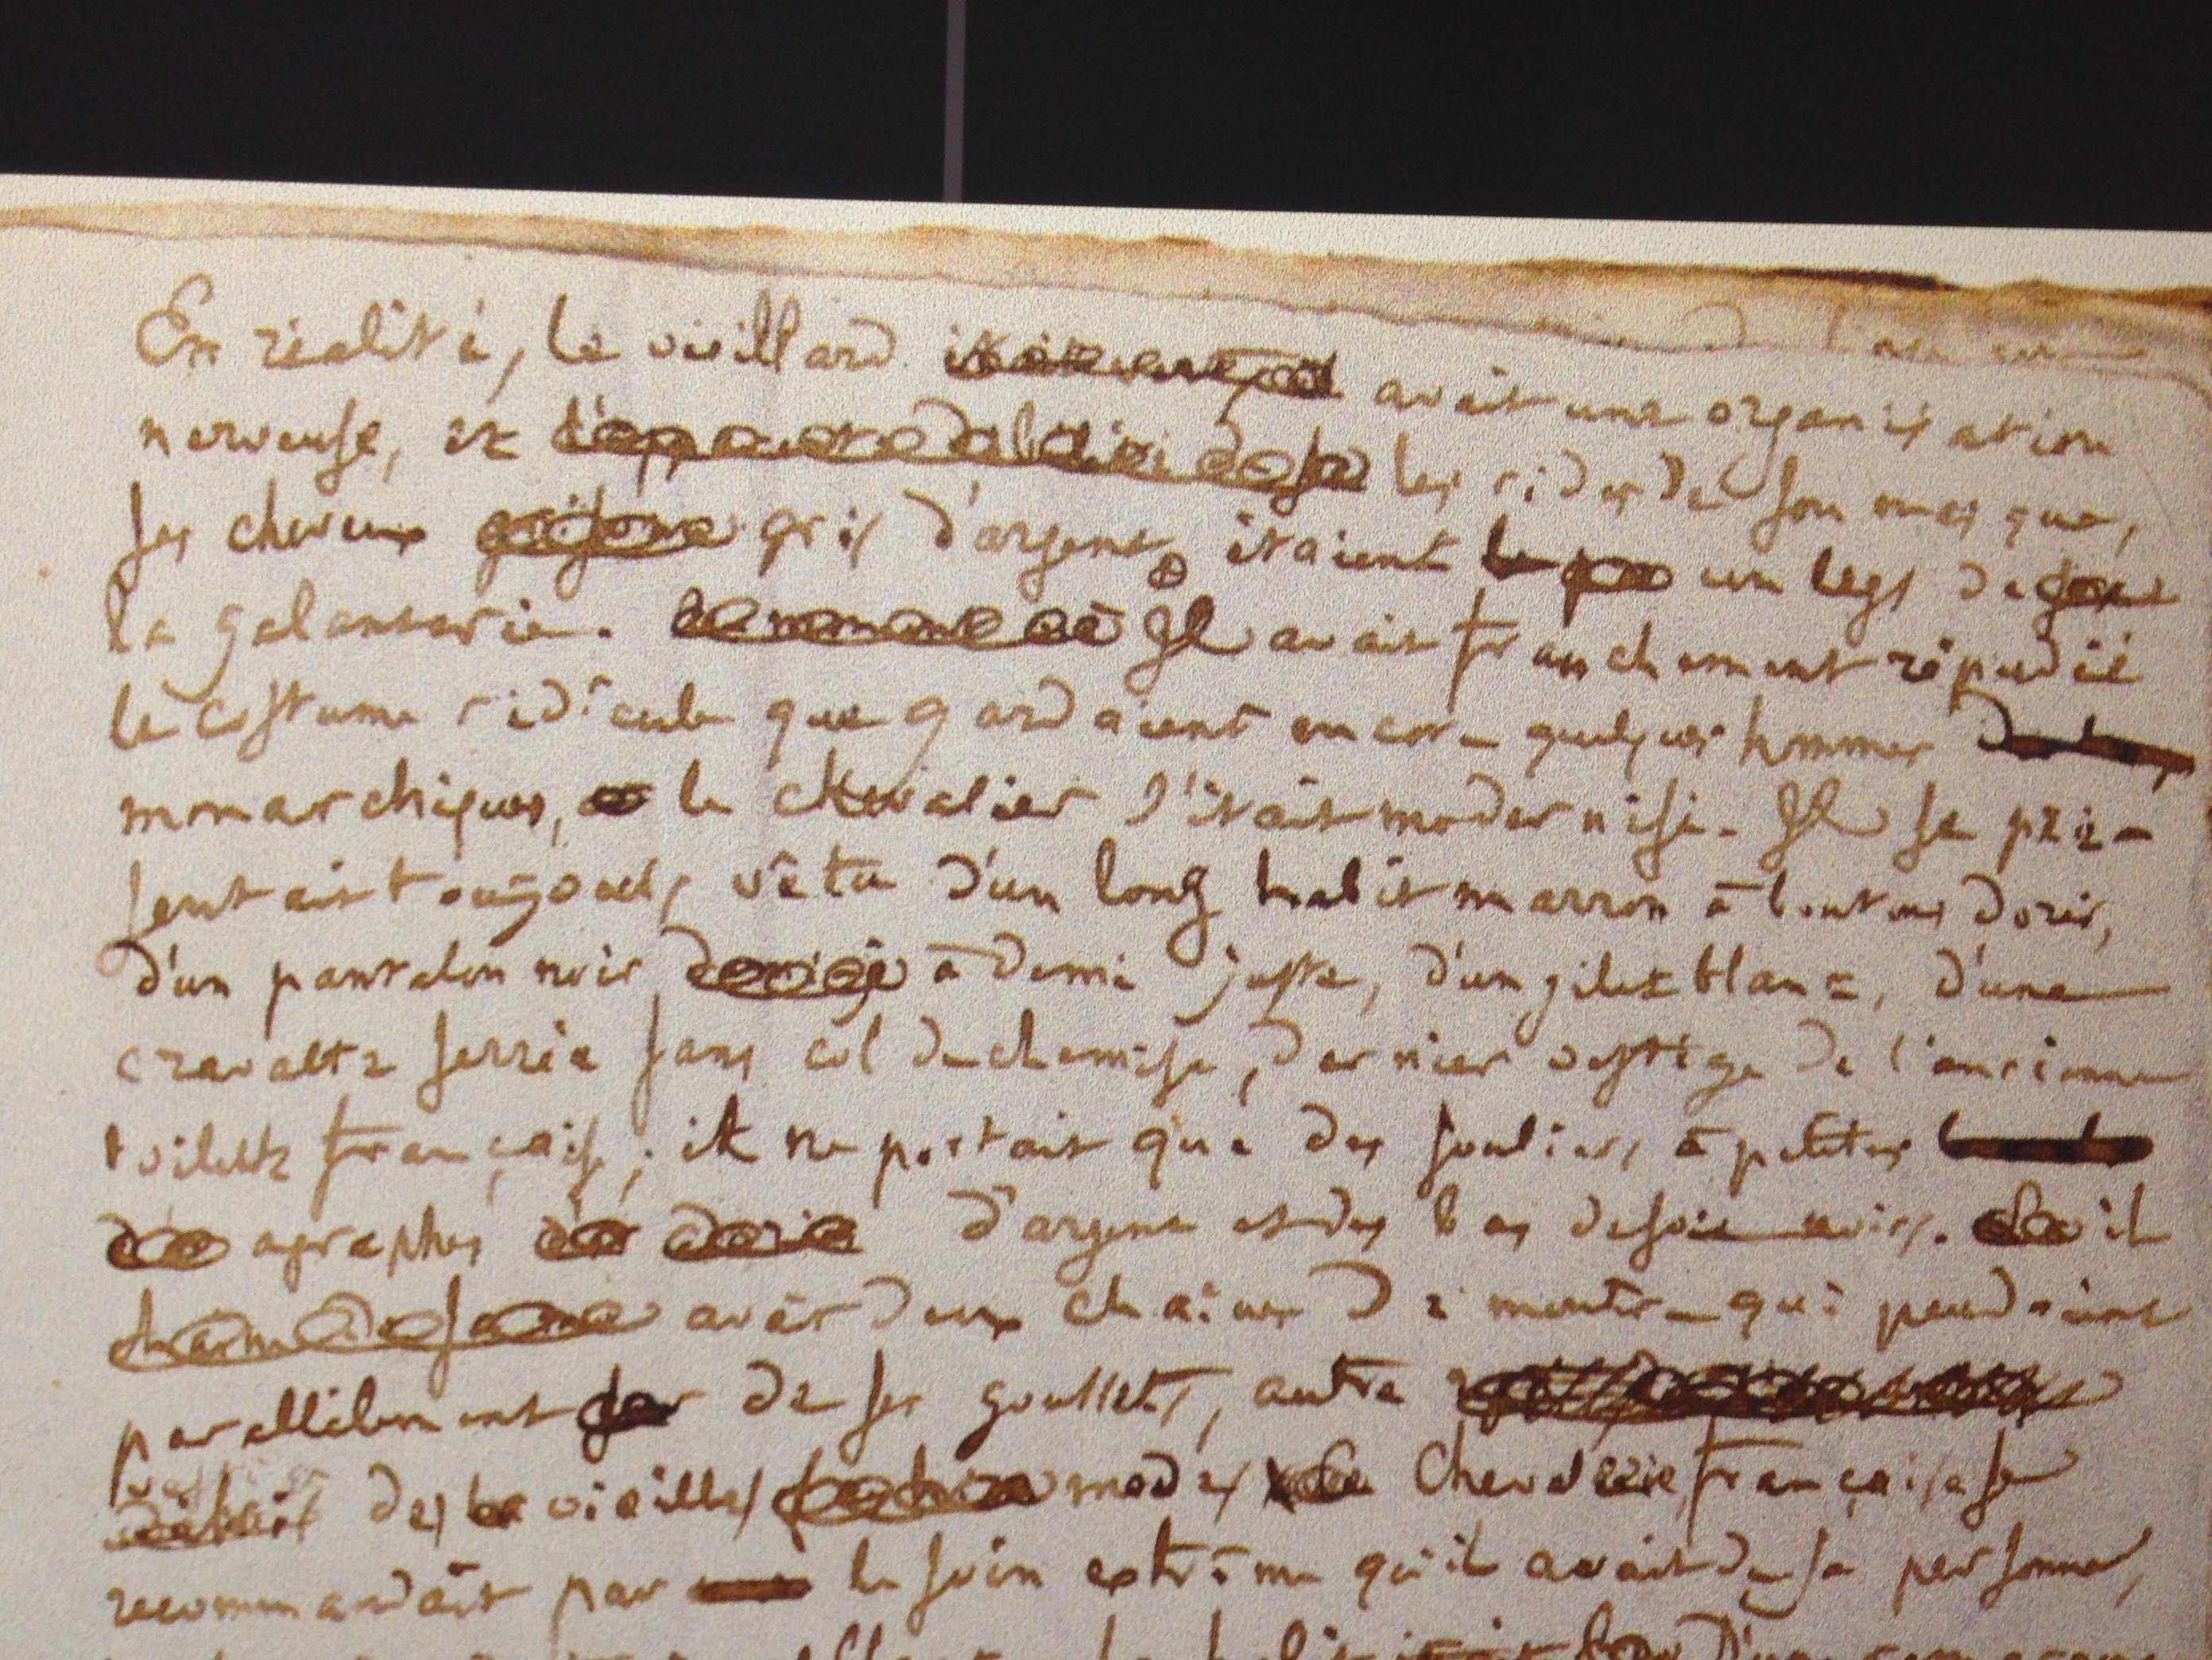 En réalité, le vieillard avait une organisation
nerveuse, et les rides de son masque,
ses cheveux gris d'argent, étaient un legs de
la galanterie. Il avait franchement répudié
le costume ridicule que gardaient encore quelques hommes
monarchiques, le chevalier s'était modernisé. Il se pré-
sentait toujours vêtu d'un long habit marron à boutons dorés,
d'un pantalon noir à demi juste, d'un gilet blanc, d'une
cravatte serrée sans col de chemise, dernier vestige de l'ancienne
toilette française; il ne portait que des souliers à petites
agraphes d'argent et des bas de soie noirs. il
avait deux chaines de montre qui pendaient
parallèlement de ses goussets, autre
vestige des vieilles modes françaises
recommandait par le soin extrême qu'il avait de sa personne,